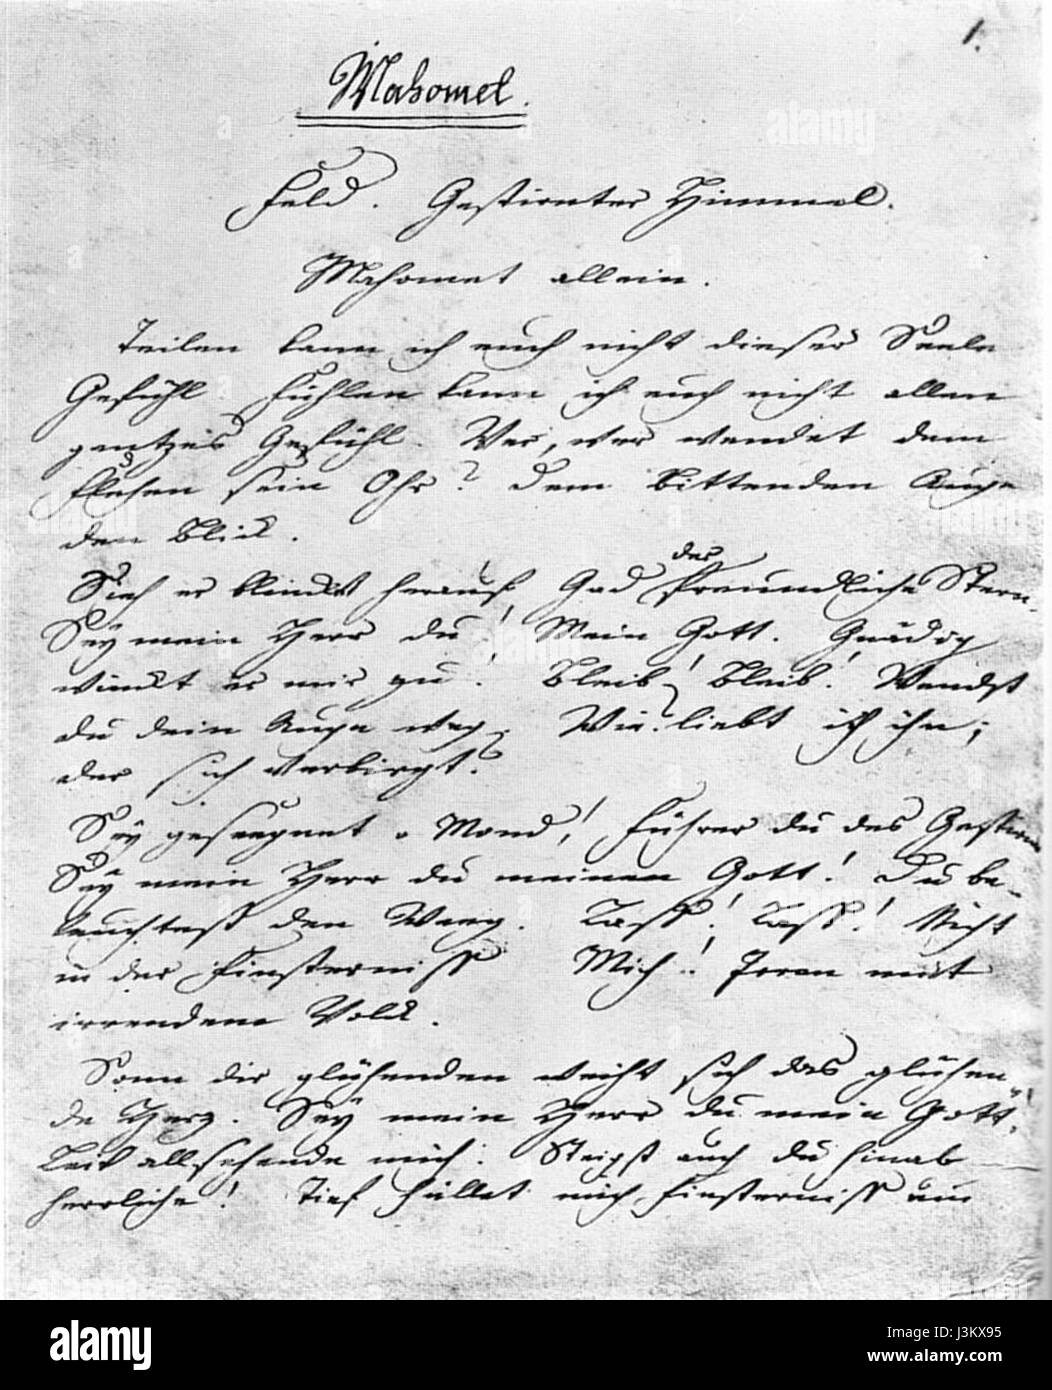 1.
Mahomet.
Feld. Gestirnter Himmel.
Mahomet allein.
Teilen kann ich euch nicht dieser Seele
Gefühl. Fühlen kann ich euch nicht allen
gantzes Gefühl. Wer, wer wendet dem
Flehen sein Ohr? Dem bittenden Auge
den Blick.
Sieh er blinckt herauf Gad der freundliche Stern.
Sey mein Herr du! Mein Gott. Gnädig
winckt er mir zu! Bleib! Bleib! Wendst
du dein Auge weg. Wie? liebt ich ihn,
der sich verbirgt?
Sey gesegnet o Mond! Führer du des Gestirns
Sey mein Herr du meinen Gott! Du be-
leuchtest den Weeg. Lass! Lass! Nicht
in der Finsterniss Mich! Irren mit
irrendem Volck.
Sonn dir glühenden weiht sich das glühen-
de Herz. Sey mein Herr du mein Gott!
Leit allsehende mich. Steigst auch du hinab
herrliche! Tief hüllet mich Finsterniss ein
alamy
a
alamy
Image ID: J3KX95
www.alamy.com